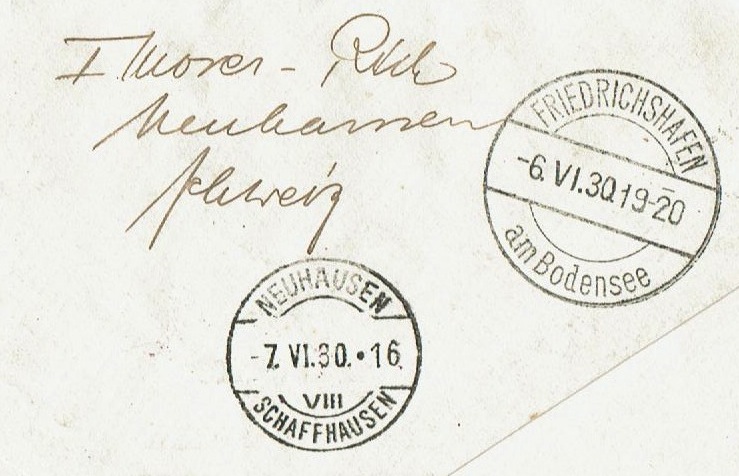 Neuhausen
Schweiz
FRIEDRICHSHAFEN
-6.VI.30.19-20
am Bodensee
NEUHAUSEN
-7.VI.30.•16
VIII
SCHAFFHAUSEN